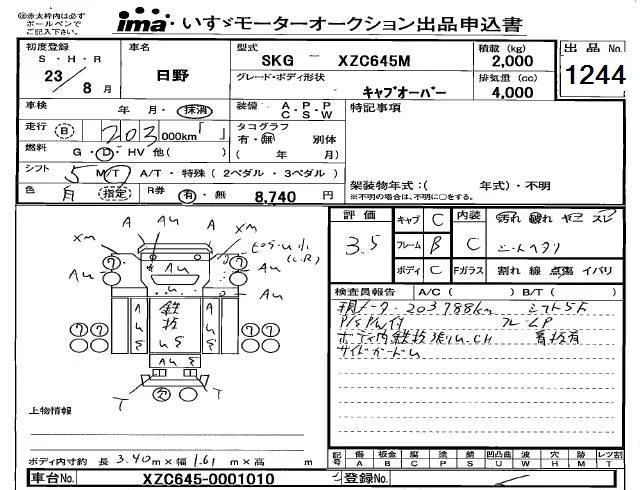 ㊟赤太枠内は必ず
ボールペンで
ご記入下さい。
ima いすゞモーターオークション出品申込書
初度登録 車名 型式 SKG - XZC645M 積載 (kg) 2,000 出品 No. 1244
S・H・R
23 / 8 月 日野 グレード・ボディ形状 キャブオーバー 排気量 (cc) 4,000
車検 年 月・抹消 装備 A・P・P C・S・W 特記事項
走行 B 203,000km タコグラフ
有・無 別体
燃料 G・D・HV 他( ) ( 年 月)
シフト 5 M/T A/T・特殊(2ペダル・3ペダル)
架装物年式:( 年式)・不明
※不明の場合は、不明に○をする。
色 指定 R券 有・無 8,740 円
評価 3.5 キャブ C 内装 C 汚れ 破れ ヤニ スレ
フレーム B シートヘタリ
ボディ C Fガラス 割れ 線 点傷 イバリ
検査員報告 A/C( ) B/T( )
現メーター 203,788km シフト5F
P/S P/W付
ボディ内鉄板張りU.CH 看板有
サイドガードU
A Au A
XM XM
Au Au
Au
Au
鉄板
AuS
T T
上物情報
ボディ内寸約 長 3.40 m×幅 1.61 m×高 m
記号 傷 A 板金 B 腐 C 塗 P 錆 S 凹凸曲 U 波 W 穴 H 跡 M レンズ割 T
車台No. XZC645-0001010 登録No.